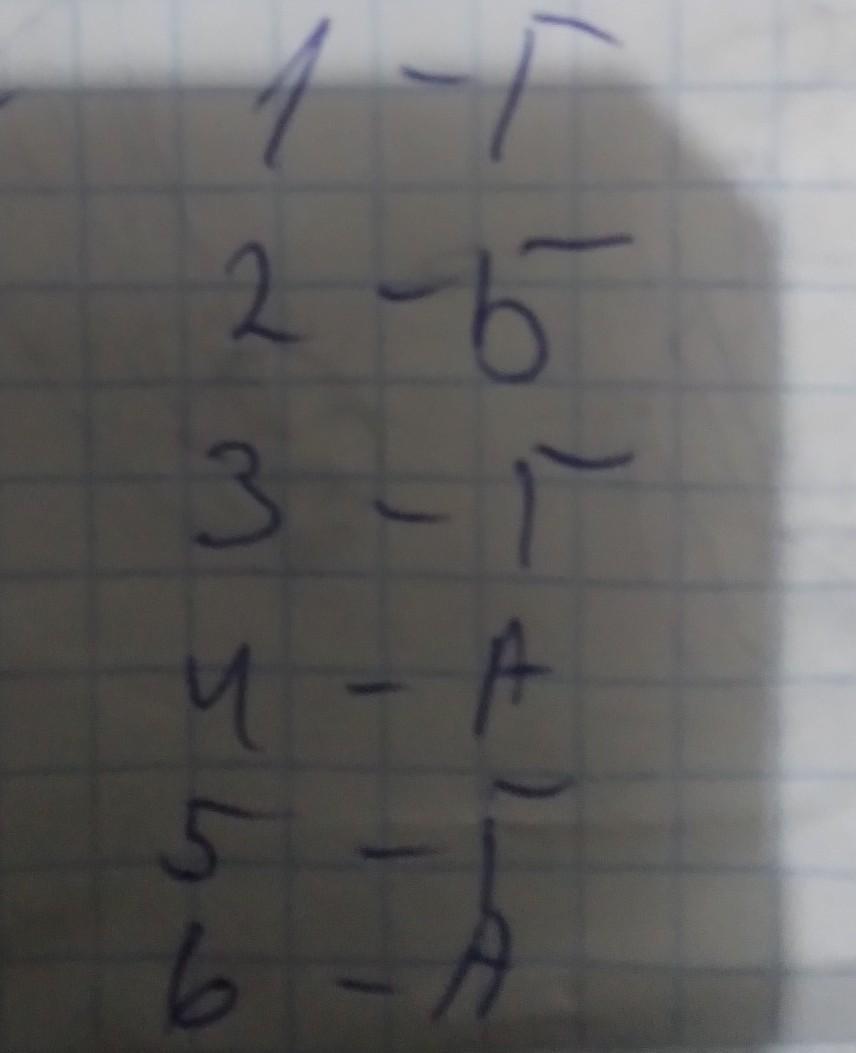 1 - Г
2 - Б
3 - Г
4 - А
5 - Г
6 - А